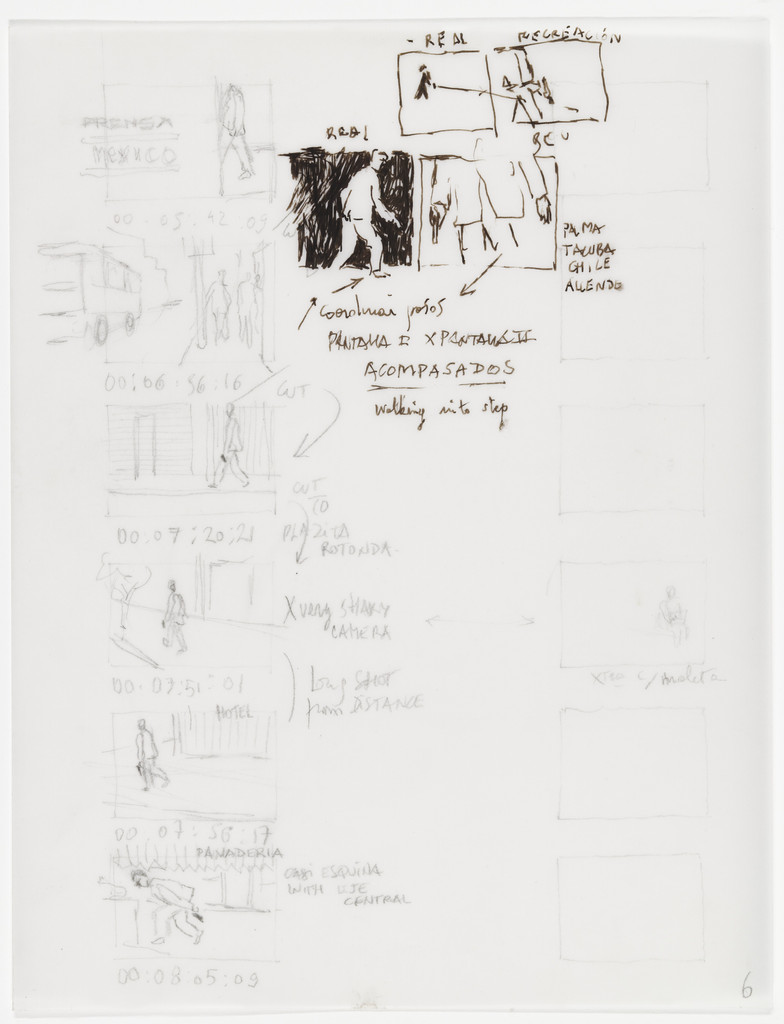 - REAL
RECREACIÓN
REAL
REC
PALMA
TACUBA
CHILE
ALLENDE
Coordinar pasos
PANTALLA I X PANTALLA II
ACOMPASADOS
walking into step
PRENSA
MEXICO
00:05:42:09
00:06:56:16
CUT
CUT
TO
00:07:20:21
PLAZITA
ROTONDA
X very SHAKY
CAMERA
00:07:51:01
Long SHOT
from DISTANCE
HOTEL
00:07:56:17
PANADERIA
CASI ESQUINA
WITH EJE
CENTRAL
00:08:05:09
6